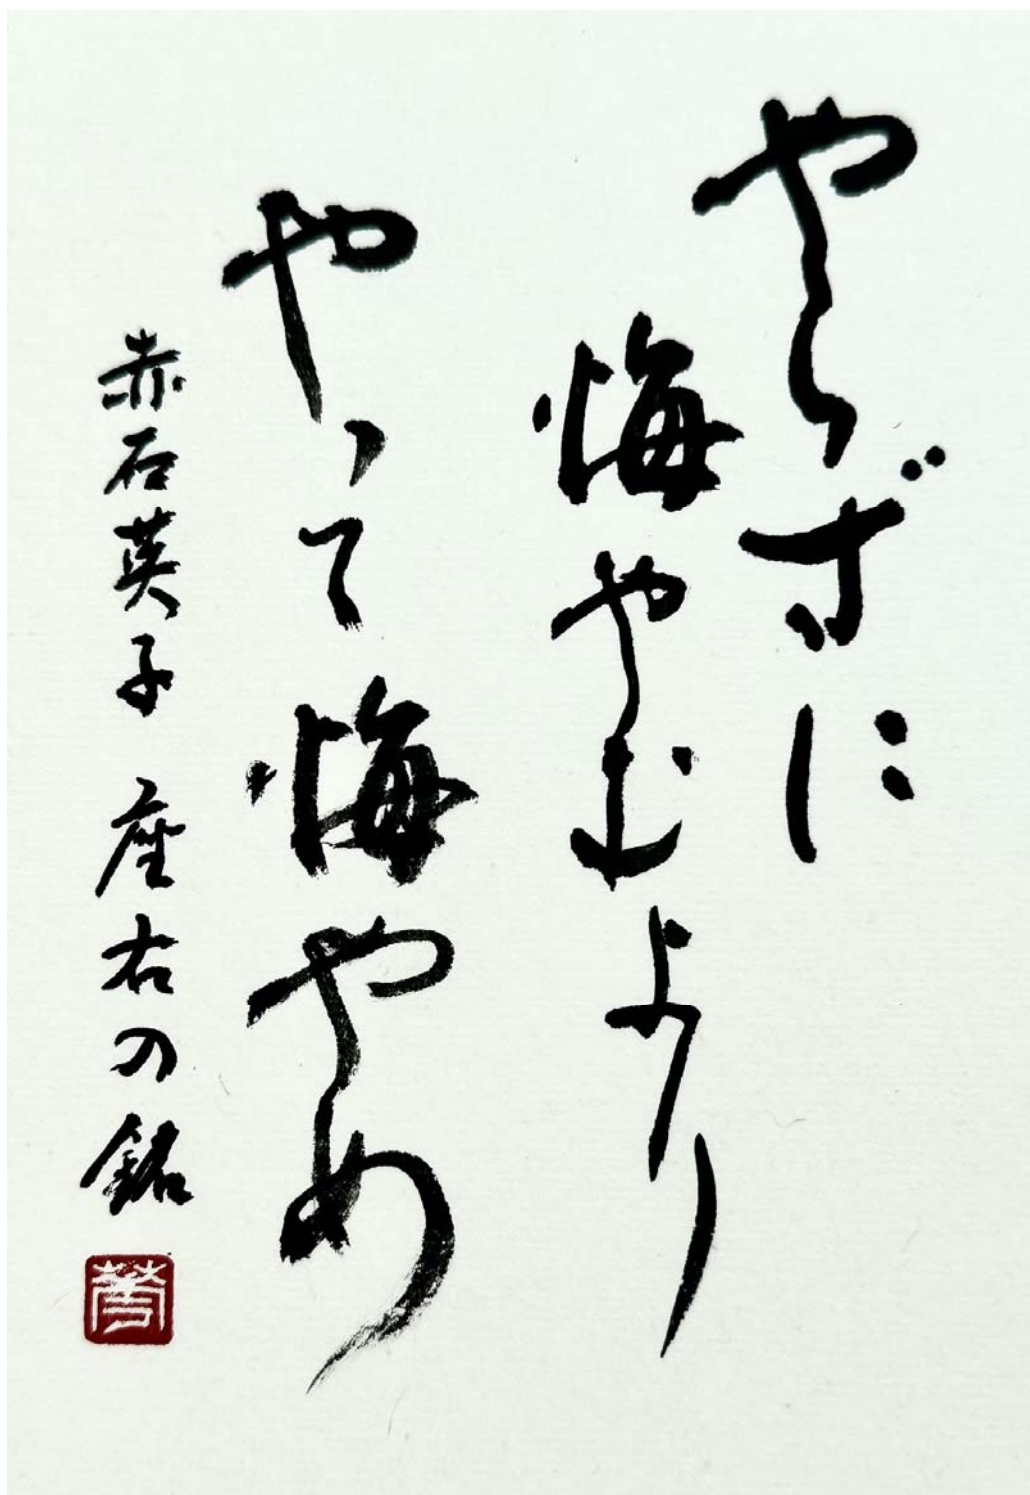 やらずに
悔やむより
やって悔やめ
赤石英子 座右の銘